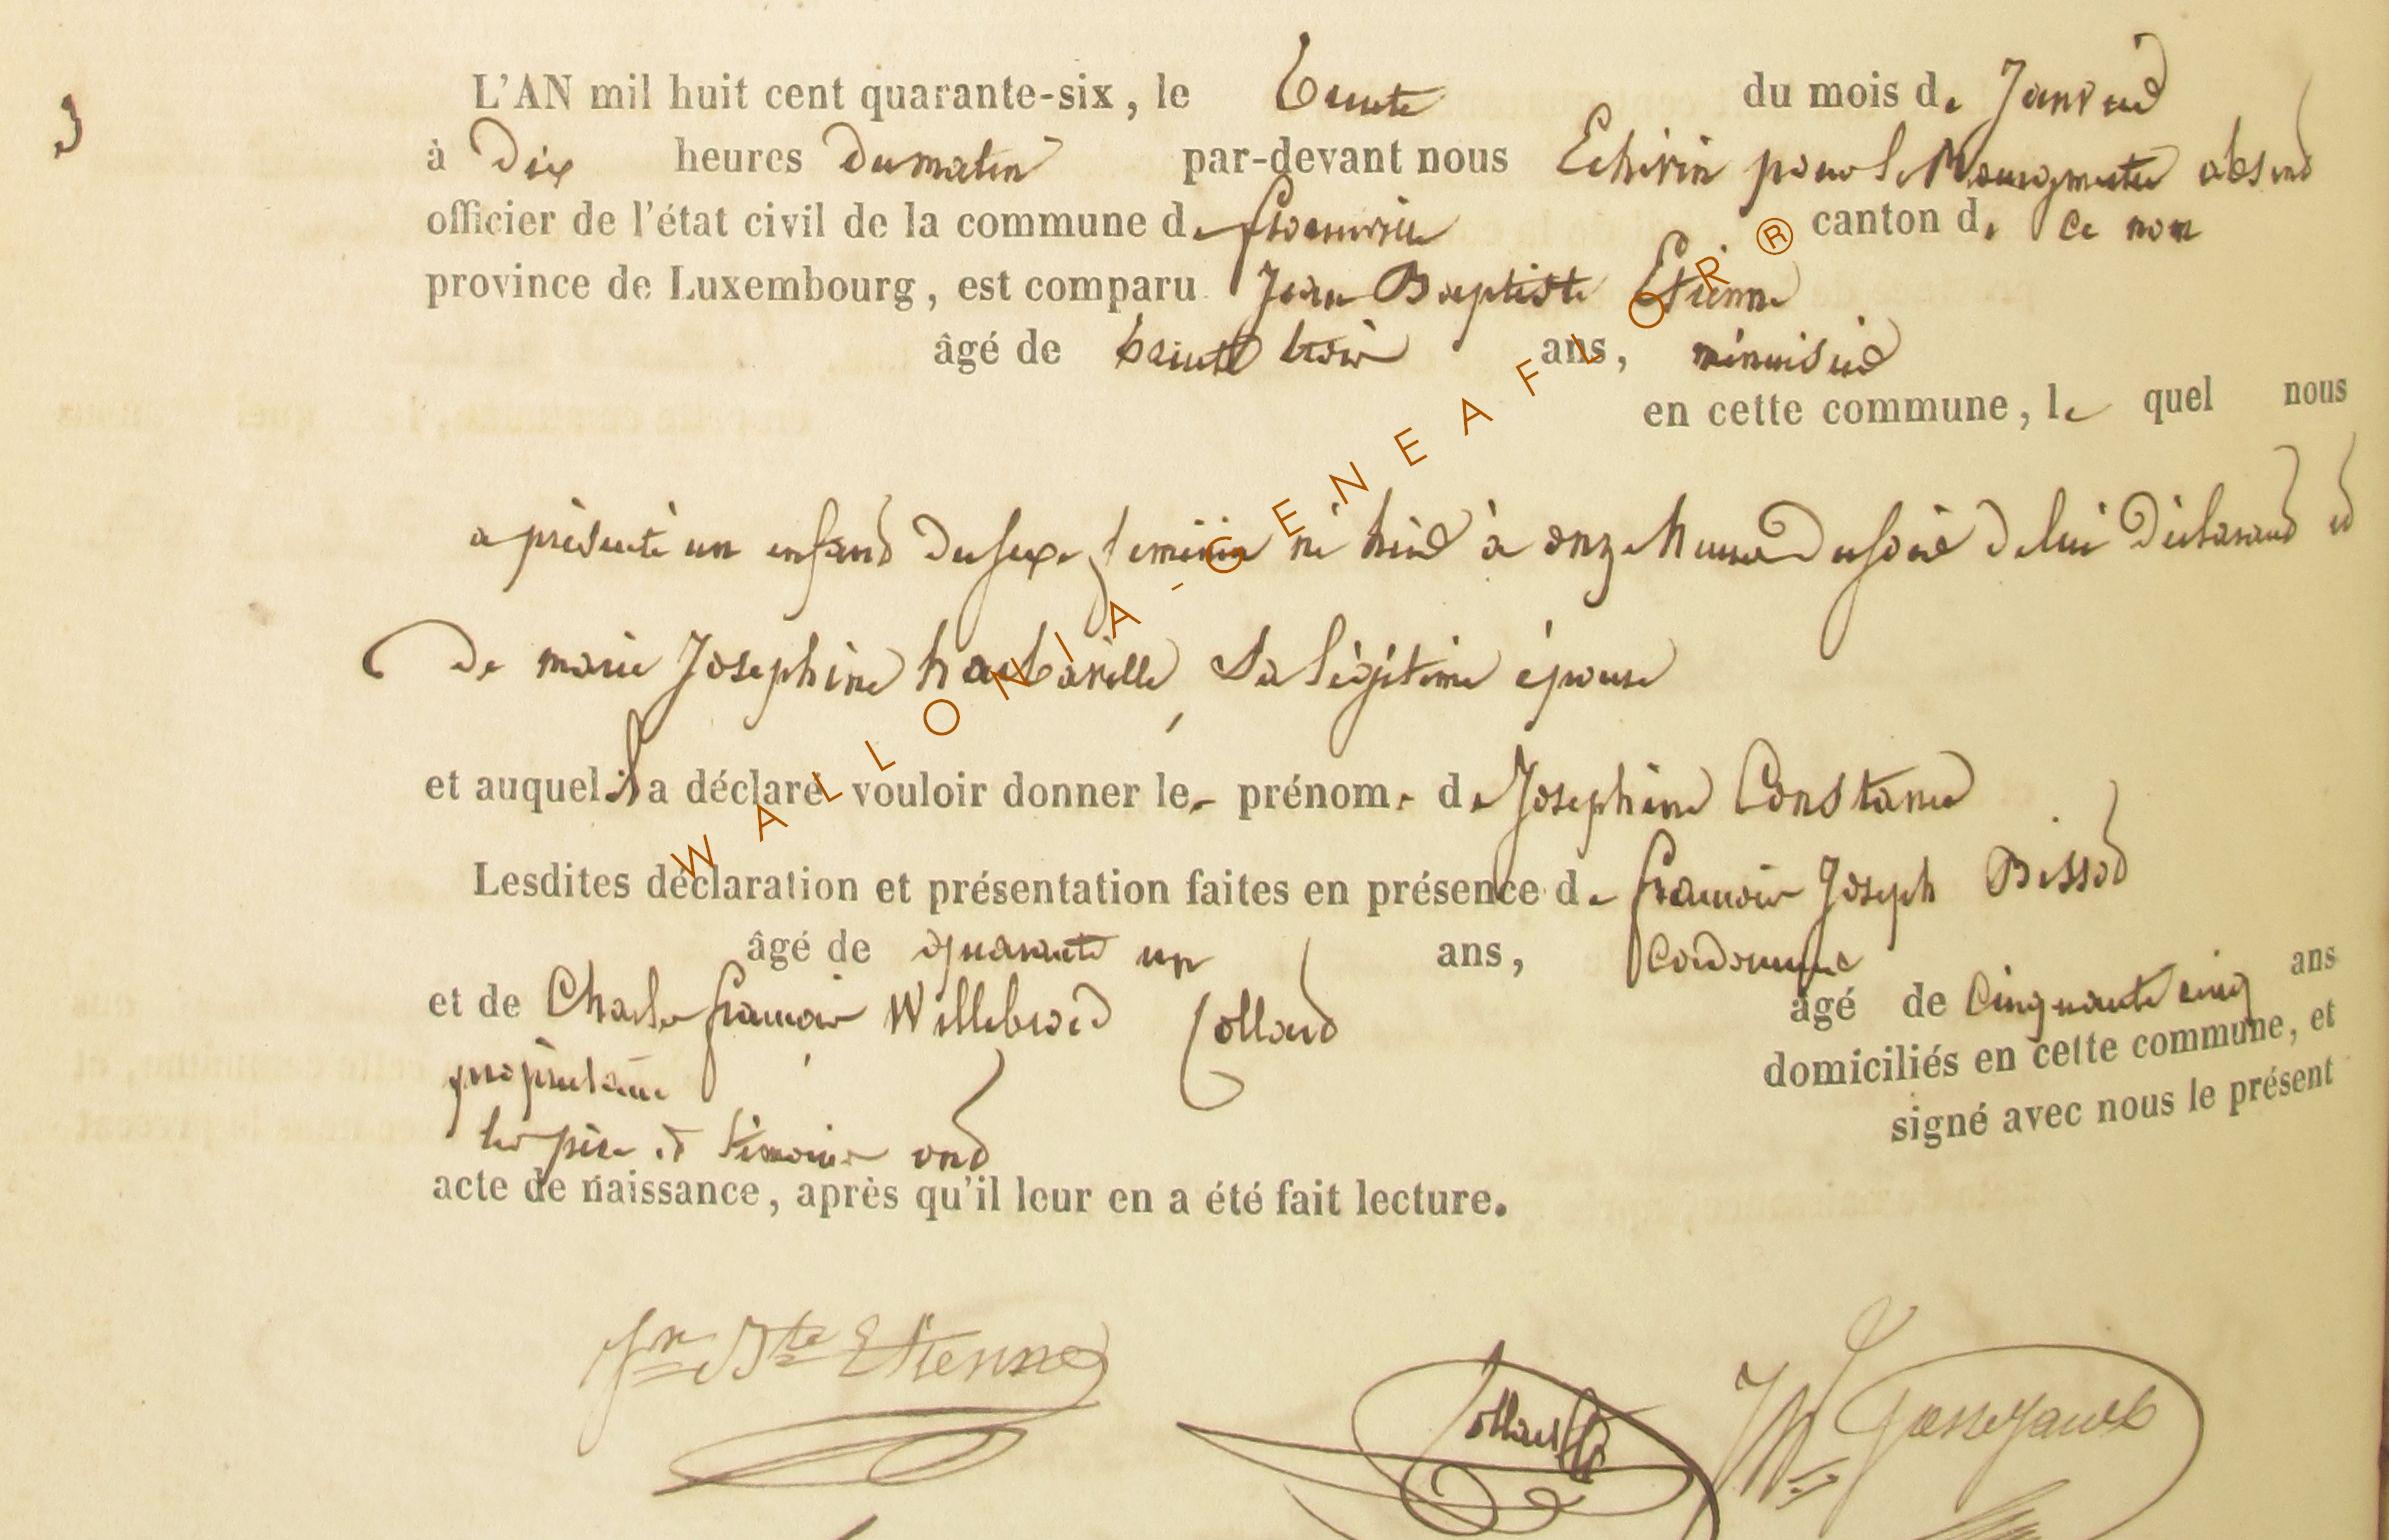 3
L'AN mil huit cent quarante-six, le trente du mois de Janvier
à Dix heures du matin par-devant nous Echevin pour le Bourgmestre absent
officier de l'état civil de la commune de florenville canton de Ce nom
province de Luxembourg, est comparu Jean Baptiste Etienne
âgé de trente trois ans, menuisier
en cette commune, le quel nous
a présenté un enfant du sexe feminin né hier à onze heures du soir de lui déclarant et
De marie Josephine harbaville, Sa légitime épouse
et auquel il a déclaré vouloir donner le prénom de Josephine Constance
Lesdites déclaration et présentation faites en présence de francois Joseph Bissot
âgé de quarante un ans, Cordonnier
et de Charles francois Willebrord Collard âgé de Cinquante cinq ans
propriétaire domiciliés en cette commune, et
les père et témoins ont signé avec nous le présent
acte de naissance, après qu'il leur en a été fait lecture.
Jn Bte Etienne
Collard
WALLONIA-GENEAFLOR®